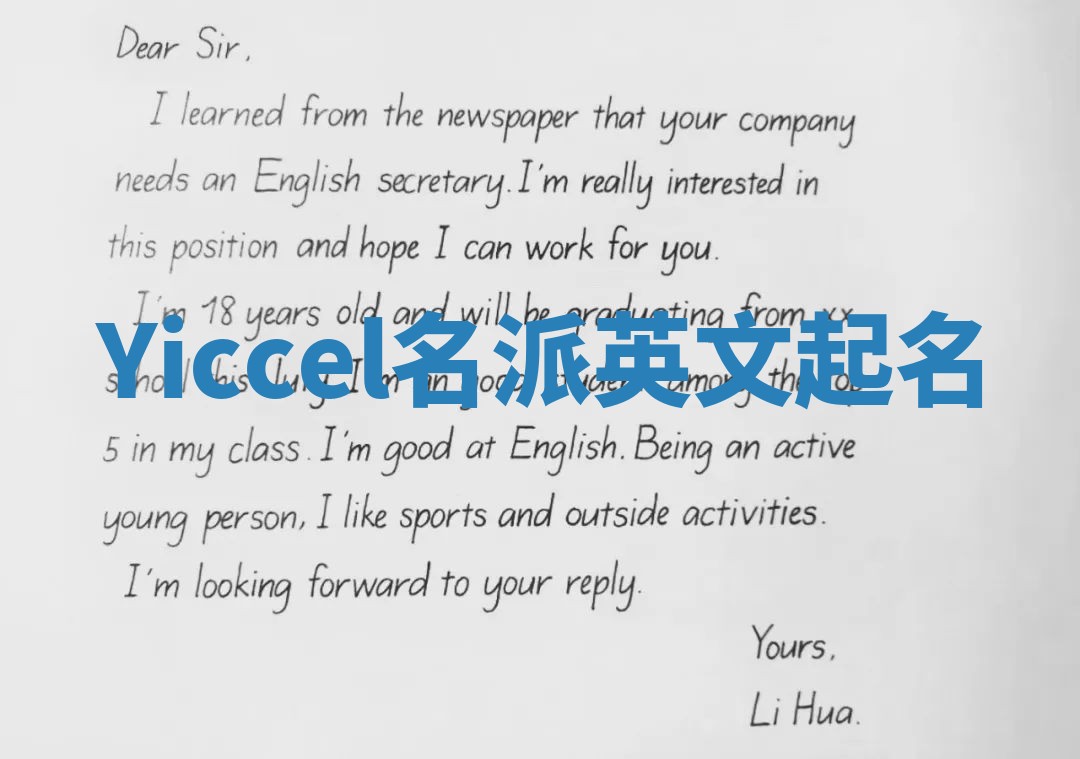 Dear Sir,
I learned from the newspaper that your company
needs an English secretary. I'm really interested in
this position and hope I can work for you.
I'm 18 years old and will be graduating from xx
Yiccel名派英文起名
school this July. I'm an good student among the top
5 in my class. I'm good at English. Being an active
young person, I like sports and outside activities.
I'm looking forward to your reply.
Yours,
Li Hua.